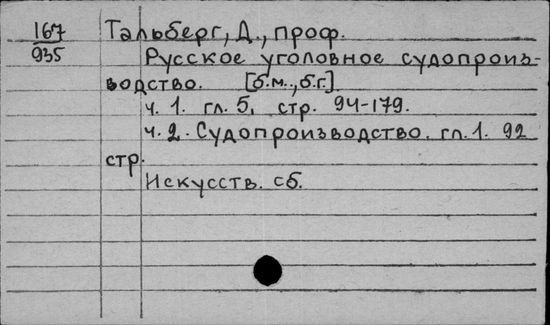 167 Тальберг, Д., проф.
935 Русское уголовное судопроиз-
водство. [б.м., б.г.].
ч. 1. гл. 5. стр. 94-179.
ч. 2. Судопроизводство. гл. 1. 92
стр.
Искусств. сб.